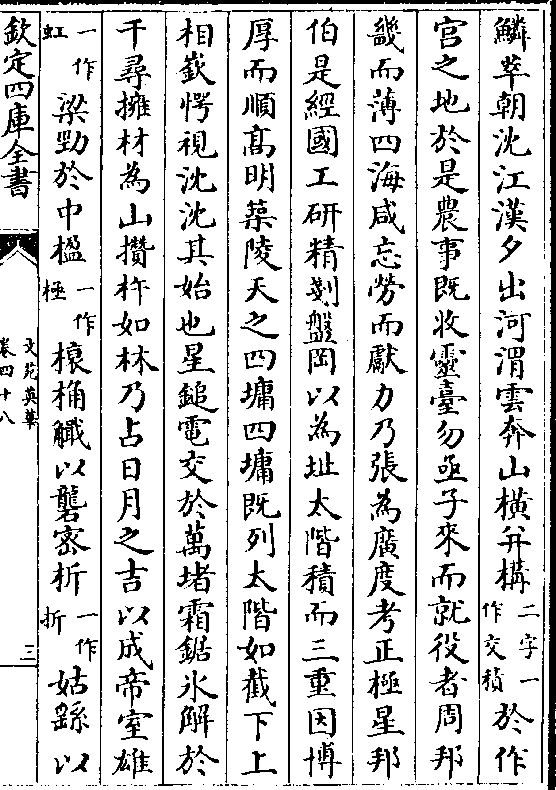 鱗萃朝沈江漢夕出河渭雲奔山橫并構二字一作交積於作
宮之地於是農事既收靈臺勿亟子來而就役者周邦
畿而薄四海咸忘勞而獻力乃張為廣度考正極星邦
伯是經國工研精剗盤岡以為址太階積而三重因博
厚而順高明築陵天之四墉四墉既列太階如截下上
相嶔愕視沈沈其始也星鎚電交於萬堵霜鋸氷解於
千尋擁材為山攢杵如林乃占日月之吉以成帝室雄
一作虹梁勁於中楹一作極榱桷巘以礱密析一作折姑繇以
欽定四庫全書
文苑英華
卷四十八
三